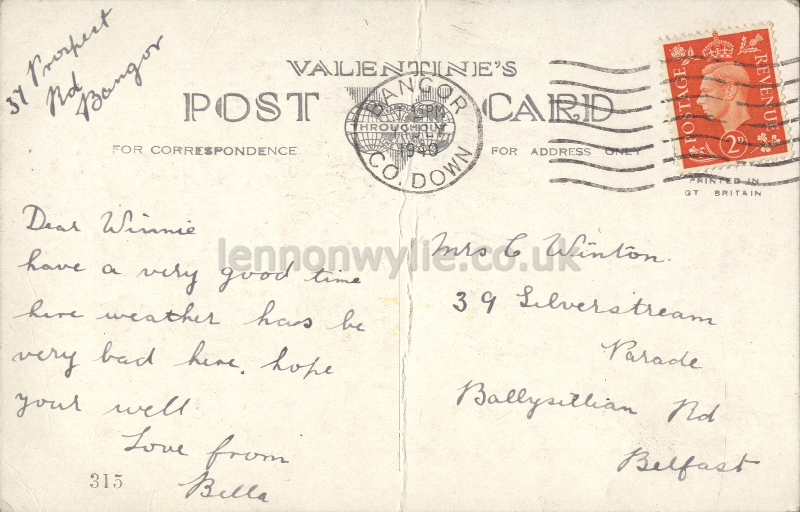 37 Prospect
Rd
Bangor
VALENTINE'S
POST CARD
FOR CORRESPONDENCE
FOR ADDRESS ONLY
BANGOR
PM
THROUGHOUT
1940
CO. DOWN
POSTAGE
REVENUE
2D
PRINTED IN
GT BRITAIN
lennonwylie.co.uk
Dear Winnie
have a very good time
here weather has be
very bad here. hope
your well
Love from
Bella
315
Mrs C Winton.
39 Silverstream
Parade
Ballysillian Rd
Belfast